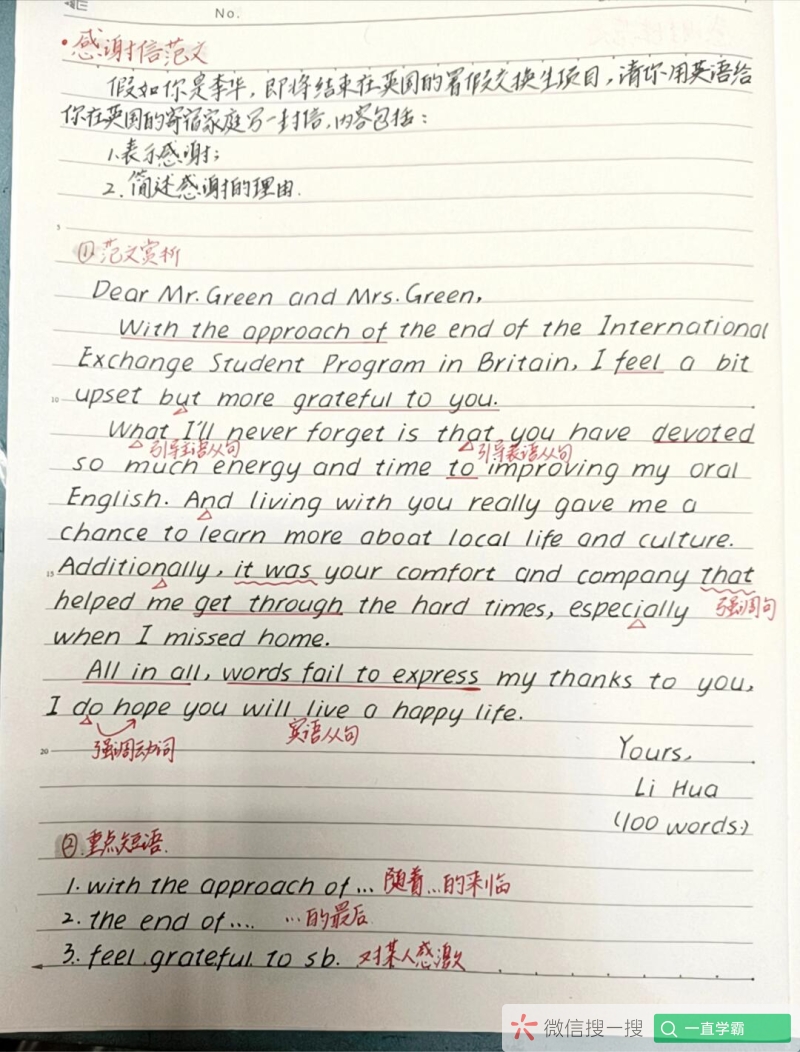 No.
·感谢信范文
假如你是李华,即将结束在英国的暑假交换生项目,请你用英语给
你在英国的寄宿家庭写一封信,内容包括:
1.表示感谢;
2.简述感谢的理由.
5
①范文赏析
Dear Mr. Green and Mrs. Green,
With the approach of the end of the International
Exchange Student Program in Britain, I feel a bit
10 upset but more grateful to you.
What I'll never forget is that you have devoted
引导主语从句 引导表语从句
so much energy and time to improving my oral
English. And living with you really gave me a
chance to learn more aboat local life and culture.
15 Additionally, it was your comfort and company that
helped me get through the hard times, especially 强调句
when I missed home.
All in all, words fail to express my thanks to you,
I do hope you will live a happy life.
强调动词 宾语从句
20 Yours,
Li Hua
(100 words)
②重点短语.
1. with the approach of... 随着...的来临
2. the end of.... ...的最后
3. feel grateful to sb. 对某人感激
微信搜一搜 一直学霸